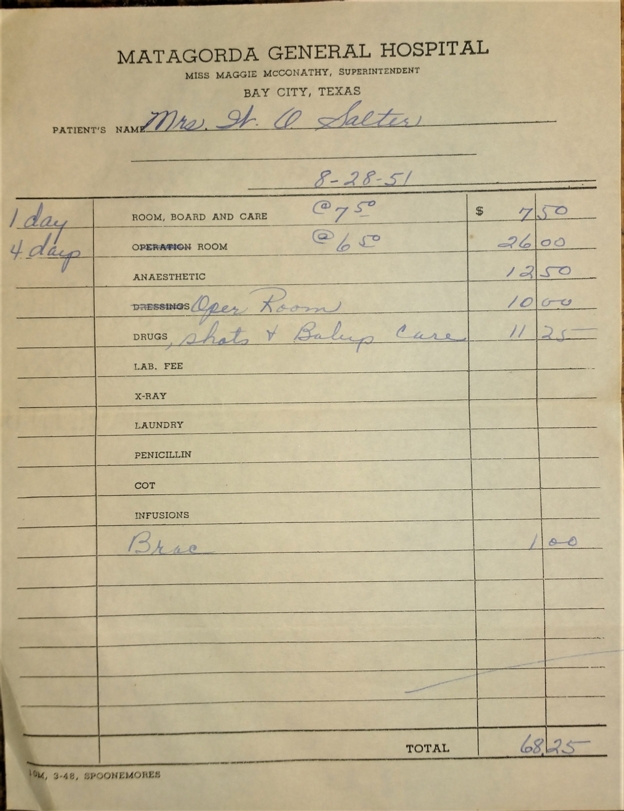 MATAGORDA GENERAL HOSPITAL
MISS MAGGIE MCCONATHY, SUPERINTENDENT
BAY CITY, TEXAS
PATIENT'S NAME Mrs. W. O Salter
8-28-51
1 day ROOM, BOARD AND CARE @ 7 50 $ 7 50
4 days OPERATION ROOM @ 6 50 26 00
ANAESTHETIC 12 50
DRESSINGS Oper Room 10 00
DRUGS, shots & Babys Care 11 25
LAB. FEE
X-RAY
LAUNDRY
PENICILLIN
COT
INFUSIONS
1 00
TOTAL 68 25
3-48, SPOONEMORES